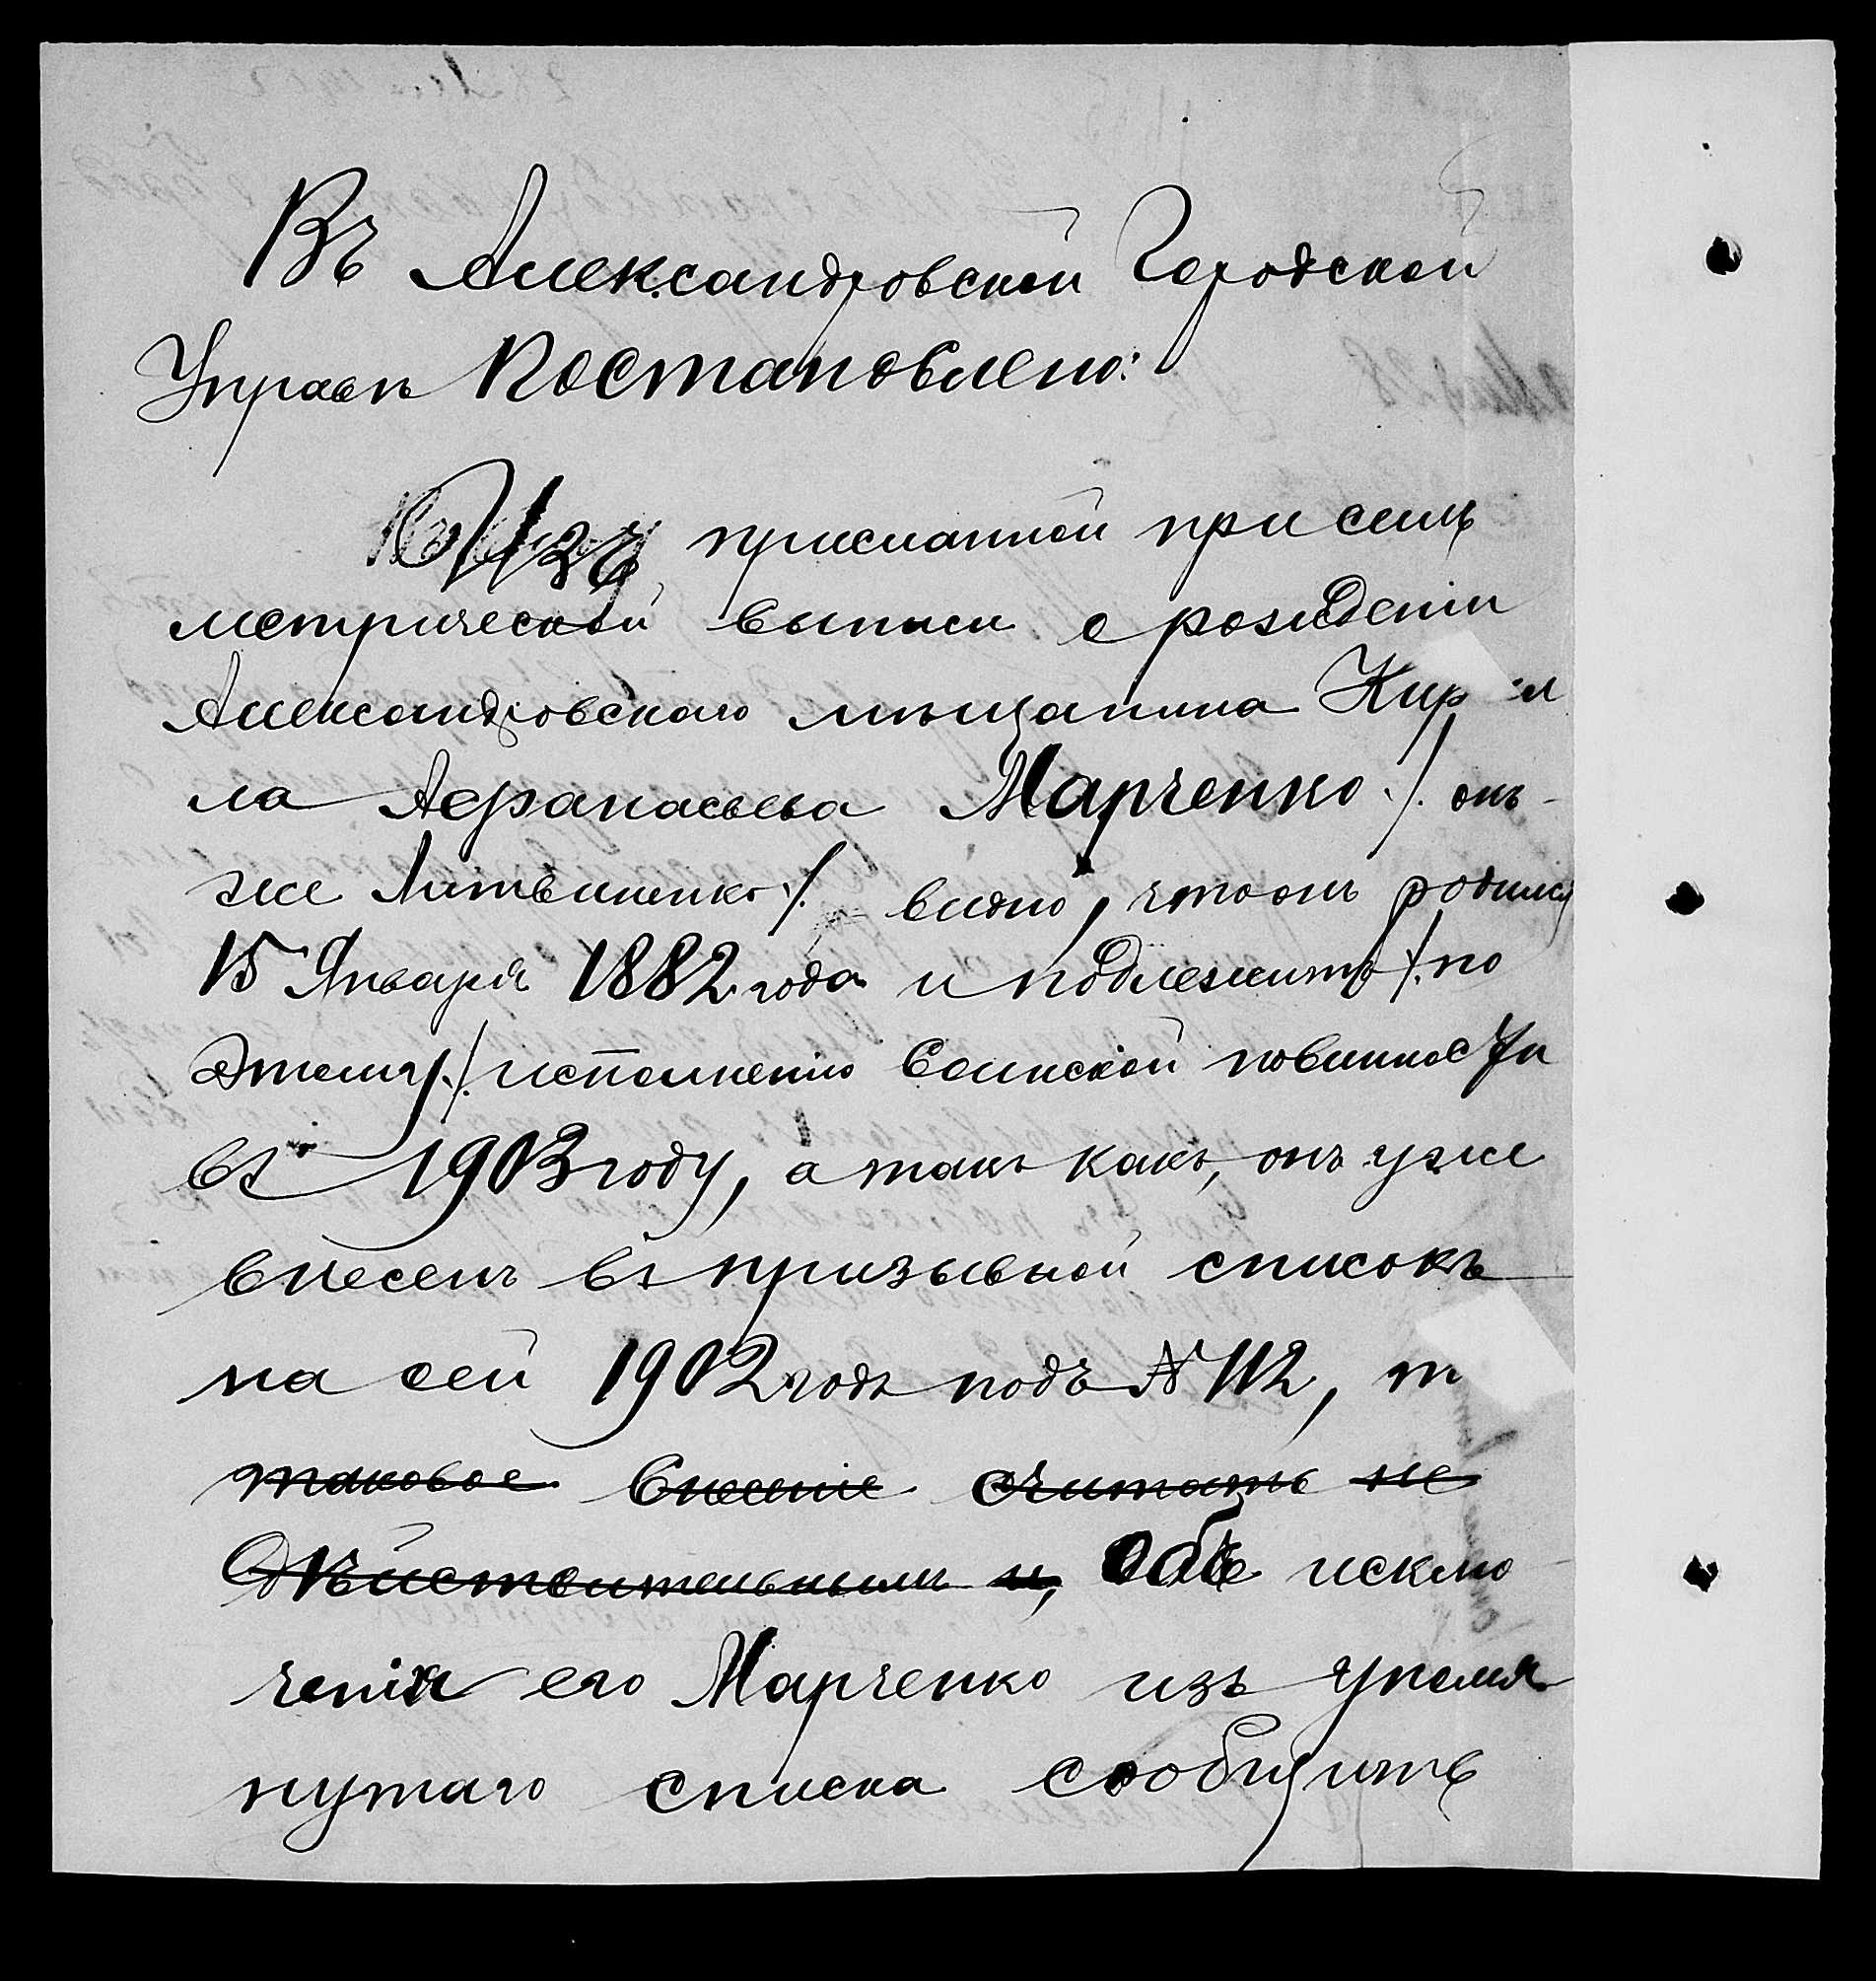 Въ Александровской Городской
Управѣ Постановлено:
Изъ присланной при семъ
метрической выписи о рожденіи
Александровскаго мѣщанина Кир
ла Афанасьева Марченко ./. онъ-
же Литвиненко ./. видно, что онъ родился
15 Января 1882 года и подлежитъ ./. по
этому ./. исполненію воинской повинности
въ 1903 году, а такъ какъ, онъ уже
внесенъ въ призывной списокъ
на сей 1902 годъ подъ № 112, т
таковое внесеніе считать не
дѣйствительнымъ и, объ исклю
ченіи его Марченко изъ упомя
нутаго списка сообщить